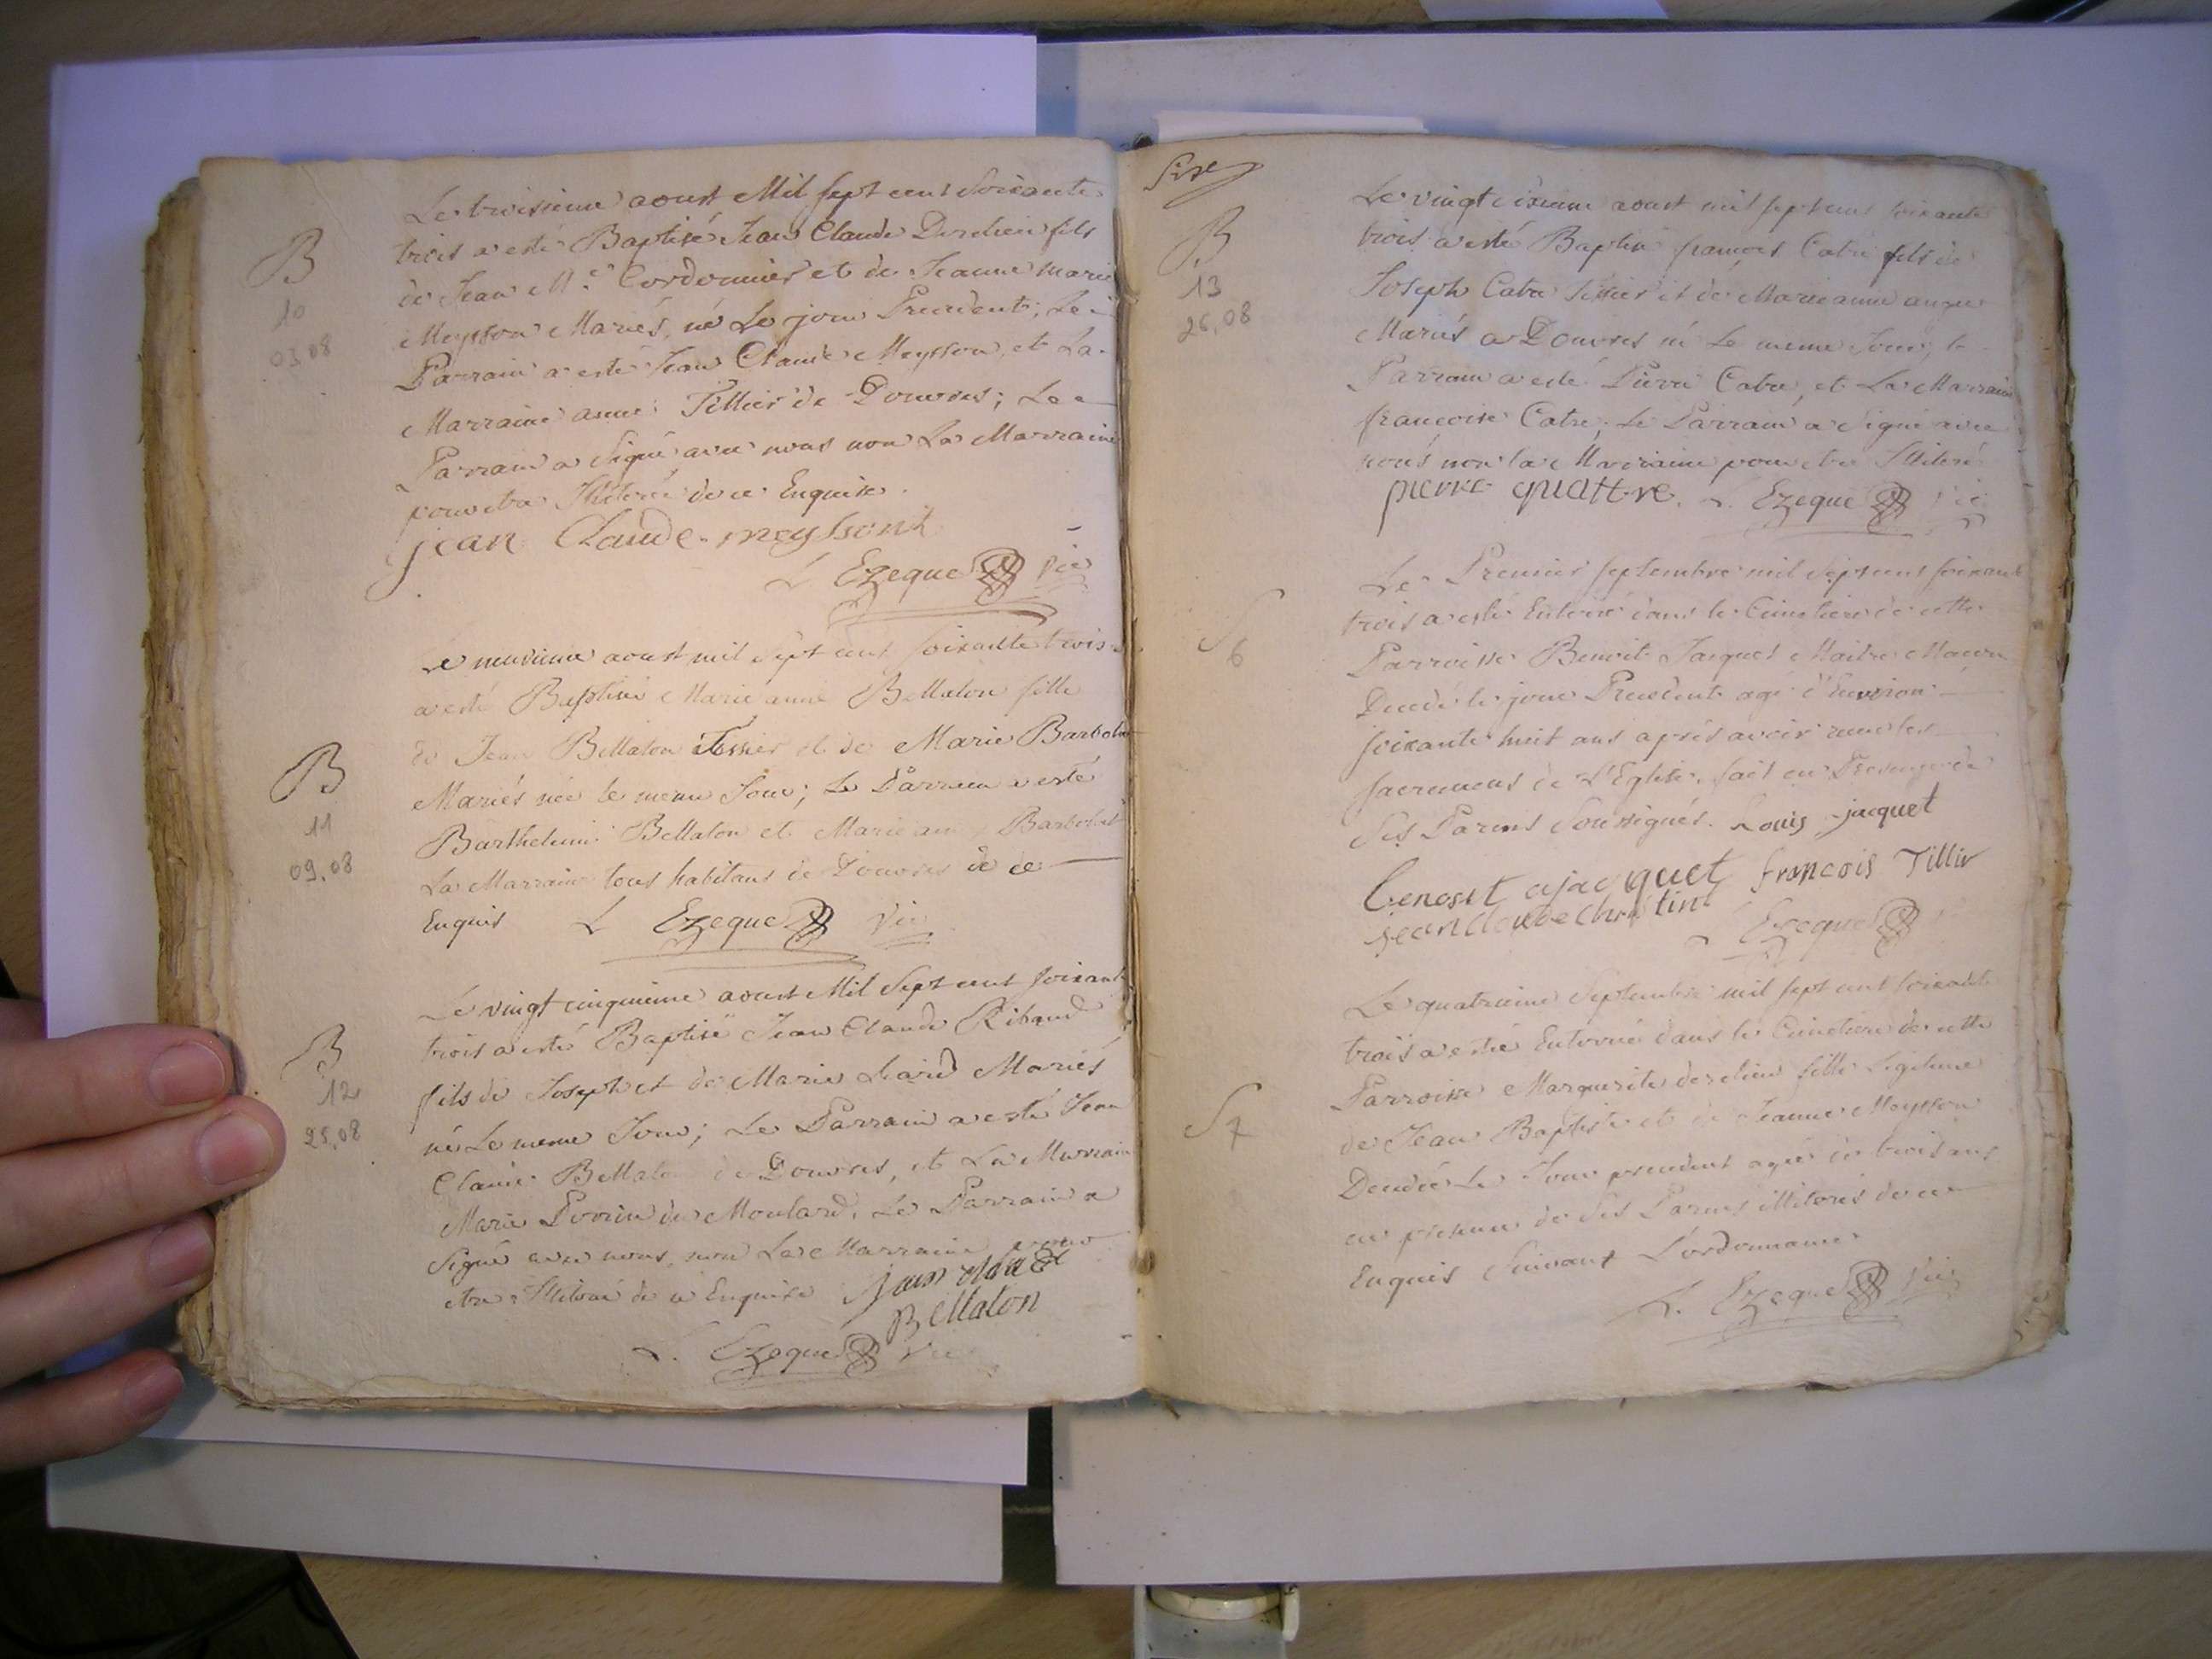 Le troisieme aoust Mil sept cent Soixante
trois a esté Baptisé Jean Claude Derelieu fils
de Jean M.e Cordonnier et de Jeanne Marie
Meysson Mariés, né Le jour Precedent; Le
Parrain a esté Jean Claude Meysson, et La
Marraine anne Tillier de Douvres; Le
Parrain a Signé avec nous non La Marraine
pour etre Illiterée de ce Enquise.
jean Claude meyssont
L. Ezeque Vic
B
10
03.08
Le neuvieme aoust mil Sept cent soixante trois
a esté Baptisée Marie anne Bellaton fille
de Jean Bellaton Tissier et de Marie Barbolat
Mariés née le meme Jour; Le Parrain a esté
Barthelemi Bellaton et Marie anne Barbolat
La Marraine tous habitans de Douvres de ce
Enquis L Ezeque Vic
B
11
09.08
Le vingt cinquieme aoust Mil Sept cent soixante
trois a esté Baptisé Jean Claude Ribaud
fils de Joseph et de Marie Liard Mariés
né Le meme Jour; Le Parrain a esté Jean
Claude Bellaton de Douvres, et La Marraine
Marie Perrin du Moulard. Le Parrain a
Signé avec nous, non La Marraine pour
etre Illiterée de ce Enquise jean claude
Bellaton
L. Ezeque Vic
B
12
25.08
Size
Le vingt sixieme aoust mil sept cent soixante
trois a esté Baptisé françois Catre fils de
Joseph Catre Tissier et de Marie anne
Mariés a Douvres né Le meme Jour, le
Parrain a esté Pierre Catre, et La Marraine
françoise Catre; Le Parrain a Signé avec
nous non la Marraine pour etre Illiterée
pierre quattre. L. Ezeque Vic
B
13
26.08
Le Premier septembre mil sept cent soixante
trois a esté Enterré dans le Cimetiere de cette
Parroisse Benoit Jacquet Maitre
Decedé le jour Precedent agé d'Environ
soixante huit ans aprés avoir receu les
sacremens de L'Eglise. fait en Presence de
Ses Parens Soussignés. Louis jacquet
benoit ajacquet françois Tillier
jean claude Christin L Ezeque
S
6
Le quatrieme Septembre mil sept cent soixante
trois a esté Enterrée dans le Cimetiere de cette
Parroisse Marguerite derelieu fille Legitime
de Jean Baptiste et de Jeanne Meysson
Decedée Le Jour precedent agée de trois ans
en presence de Ses Parens illiterés de ce
Enquis Suivant L'ordonnance
L. Ezeque Vic
S
7